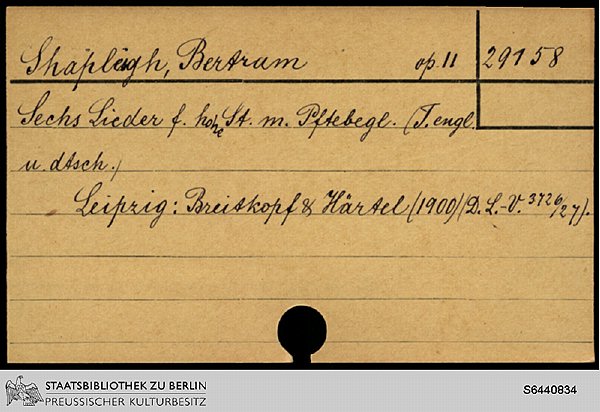 Shapleigh, Bertram op. 11 29158
Sechs Lieder f. hohe St. m. Pftebegl. (T. engl.
u. dtsch.)
Leipzig: Breitkopf & Härtel (1900) (D. L.-V. 3726/27).
STAATSBIBLIOTHEK ZU BERLIN
PREUSSISCHER KULTURBESITZ
S6440834